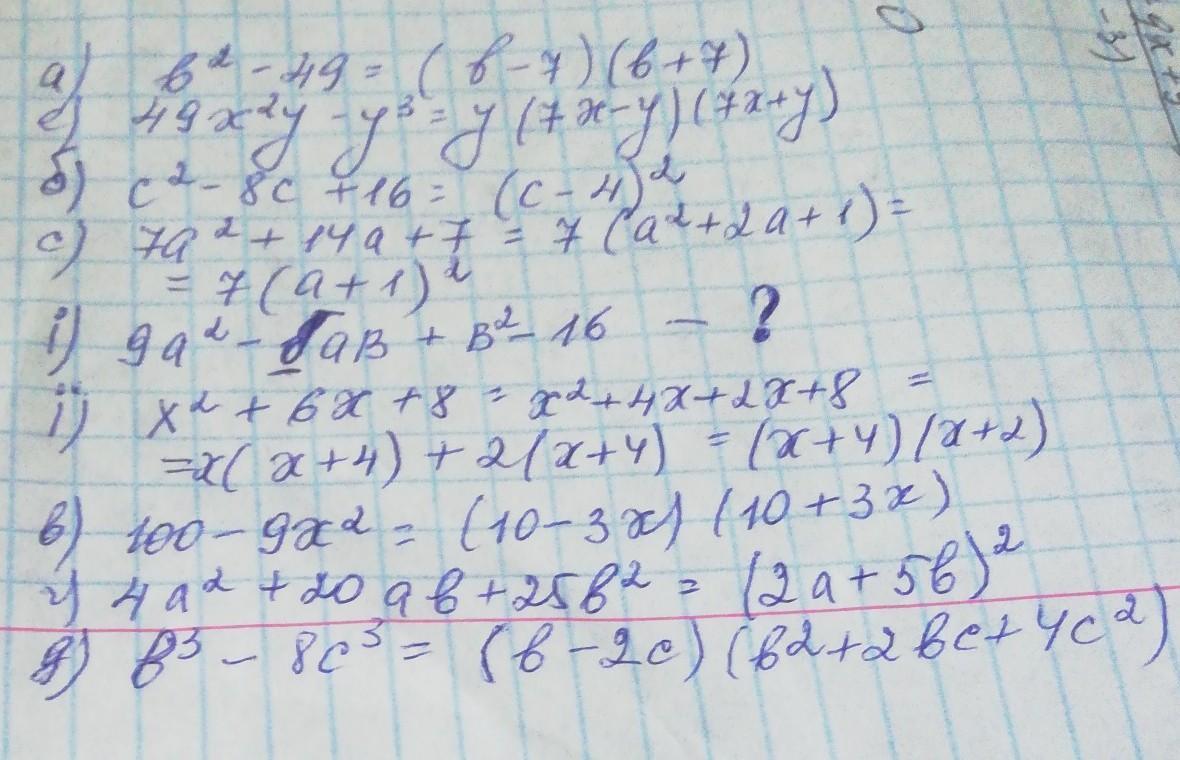 а) в² - 49 = (в - 7)(в + 7)
е) 49x²y - y³ = y(7x - y)(7x + y)
б) c² - 8c + 16 = (c - 4)²
с) 7a² + 14a + 7 = 7(a² + 2a + 1) =
= 7(a + 1)²
і) 9a² - aв + в² - 16 — ?
ї) x² + 6x + 8 = x² + 4x + 2x + 8 =
= x(x + 4) + 2(x + 4) = (x + 4)(x + 2)
в) 100 - 9x² = (10 - 3x)(10 + 3x)
г) 4a² + 20aв + 25в² = (2a + 5в)²
д) в³ - 8c³ = (в - 2c)(в² + 2вc + 4c²)